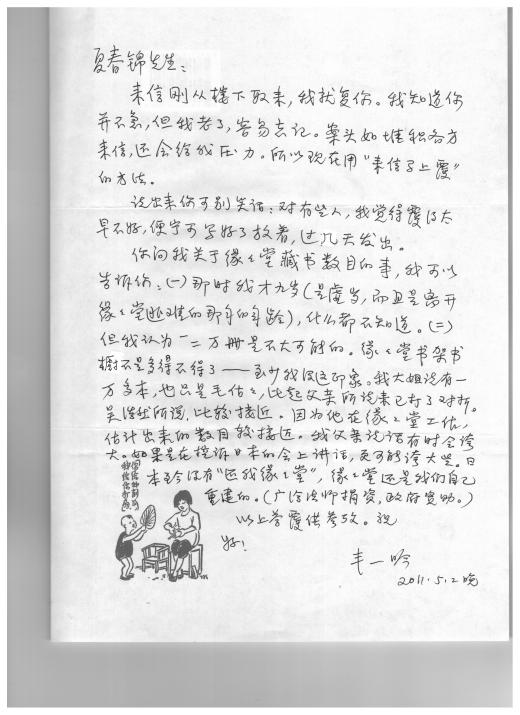 夏春锦先生：
来信刚从楼下取来，我就复你。我知道你
并不急，但我老了，容易忘记。案头如堆积各方
来信，还会给我压力。所以现在用“来信马上覆”
的方法。
说出来你可别笑话：对有些人，我觉得覆得太
早不好，便宁可写好了放着，过几天发出。
你问我关于缘缘堂藏书数目的事，我可以
告诉你：(一)那时我才九岁(是虚岁，而且是离开
缘缘堂逃难的那年的年龄)，什么都不知道。(二)
但我认为一二万册是不大可能的。缘缘堂书架书
橱不是多得不得了——至少我没这印象。我大姐说有一
万多本，也只是毛估估，比起父亲所说来已打了对折。
吴浩然所说，比较接近。因为他在缘缘堂工作，
估计出来的数目较接近。我父亲说话有时会夸
大。如果是在控诉日本的会上讲话，更可能夸大些。日
本至今没有“还我缘缘堂”，缘缘堂还是我们自己
重建的。(广洽法师捐资，政府资助。)
以上答覆供参考。祝
好！
丰一吟
2011.5.2晚